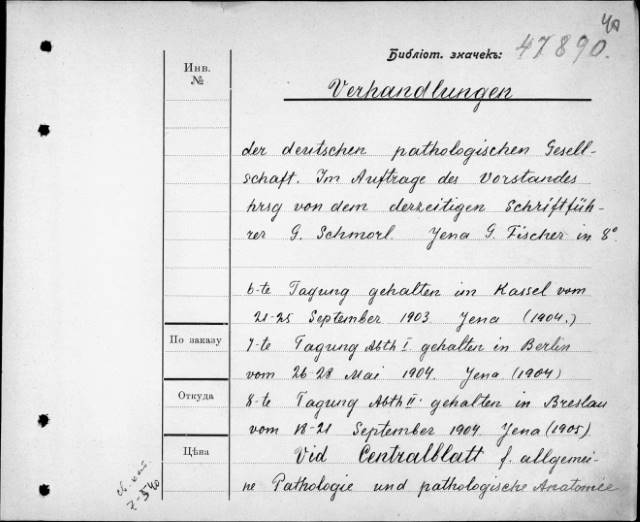 Библіот. значекъ: 47890.
Инв.
№
Verhandlungen
der deutschen pathologischen Gesell-
schaft. Im Auftrage des Vorstandes
hrsg von dem derzeitigen Schriftfüh-
rer G. Schmorl. Jena G. Fischer in 8°
6-te Tagung gehalten im Kassel vom
21-25 September 1903 Jena (1904.)
По заказу
7-te Tagung Abth I gehalten in Berlin
vom 26-28 Mai 1904. Jena (1904)
Откуда
8-te Tagung Abth II. gehalten in Breslau
vom 18-21 September 1904 Jena (1905)
Цѣна
Vid Centralblatt f. allgemei-
ne Pathologie und pathologische Anatomie